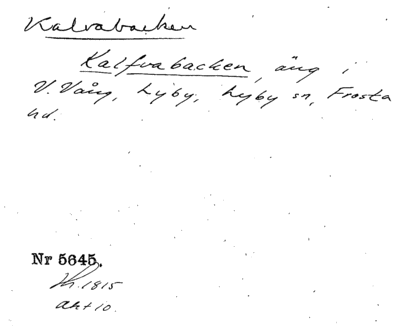 Kalvabacken
Kalfvabacken, äng i
V. Vång, Lyby, Lyby sn, Frosta
hd.
Nr 5645.
1815
akt 10.